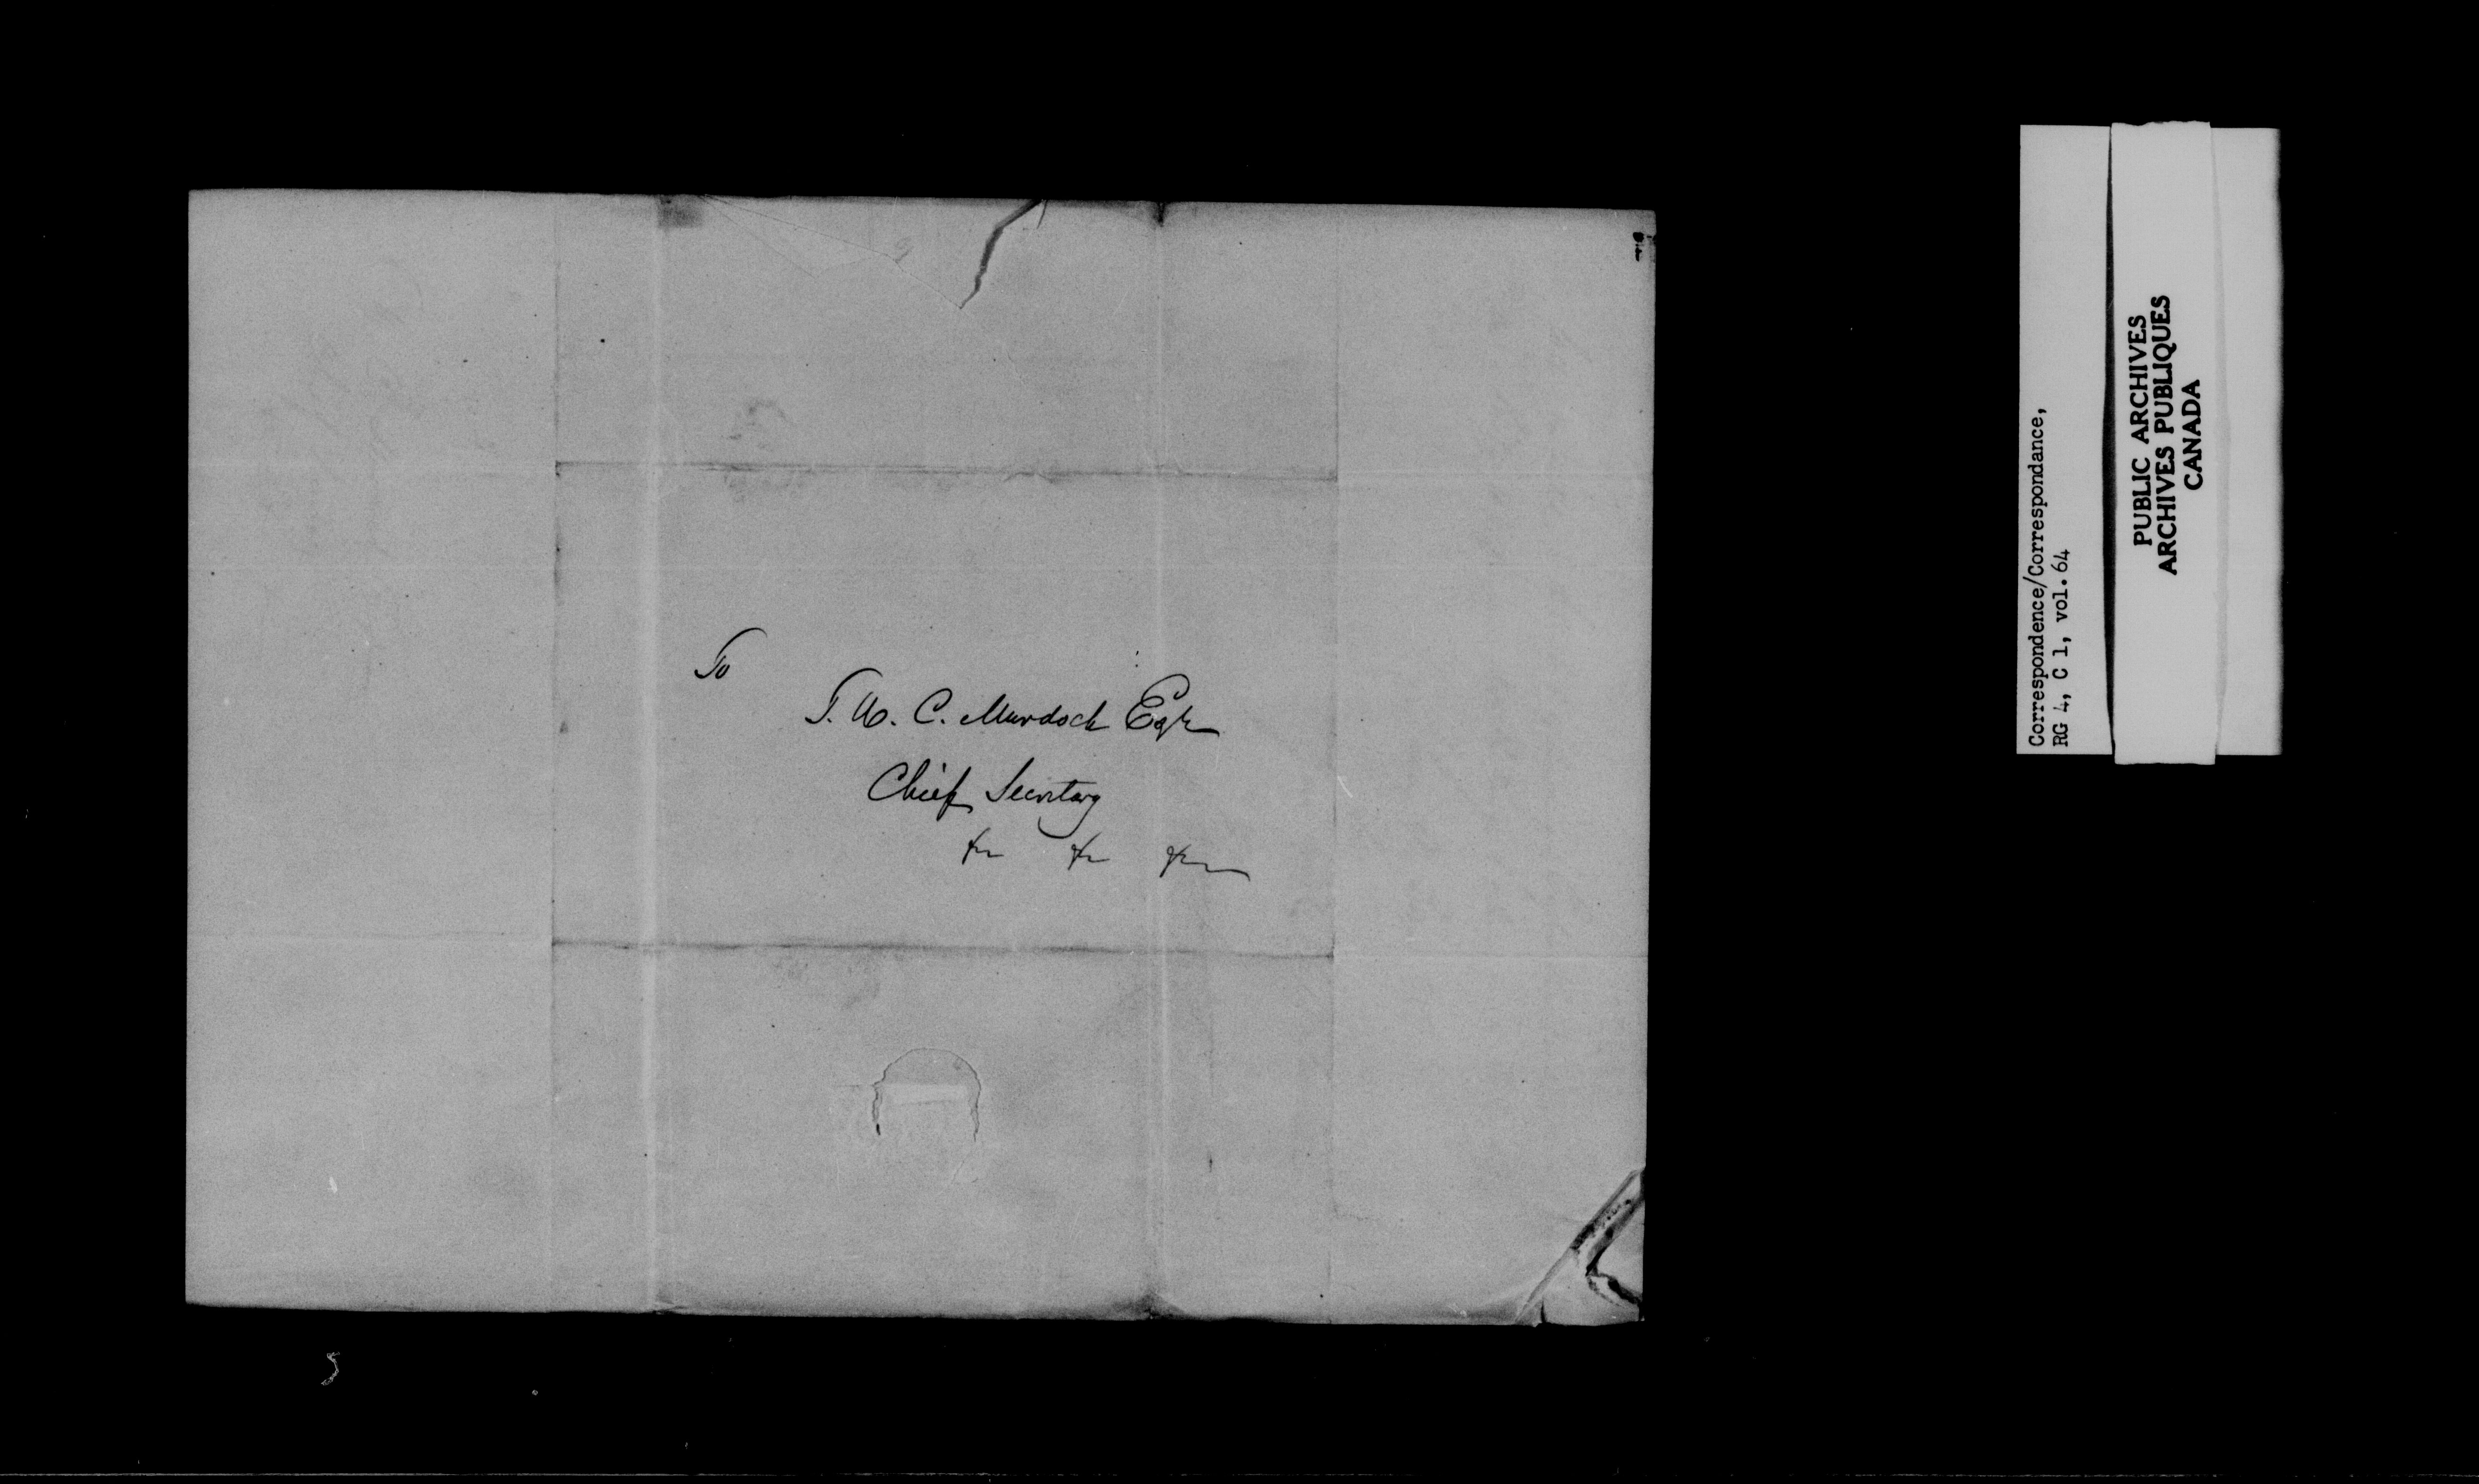 To
T. W. C. Murdoch Esqr
Chief Secretary
&c &c &c
Correspondence/Correspondance,
RG 4, C 1, vol. 64
PUBLIC ARCHIVES
ARCHIVES PUBLIQUES
CANADA